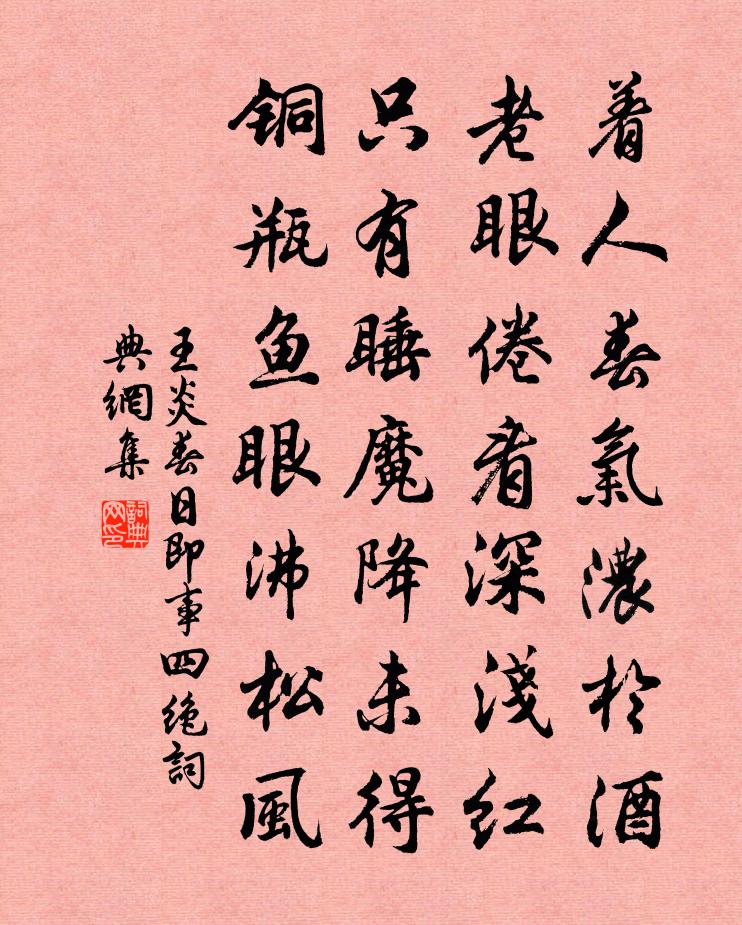 着人春氣濃於酒
老眼倦看深淺红
只有睡魔降未得
铜瓶鱼眼沸松風
王炎春日即事四絶詞
典網集
詞典
网印